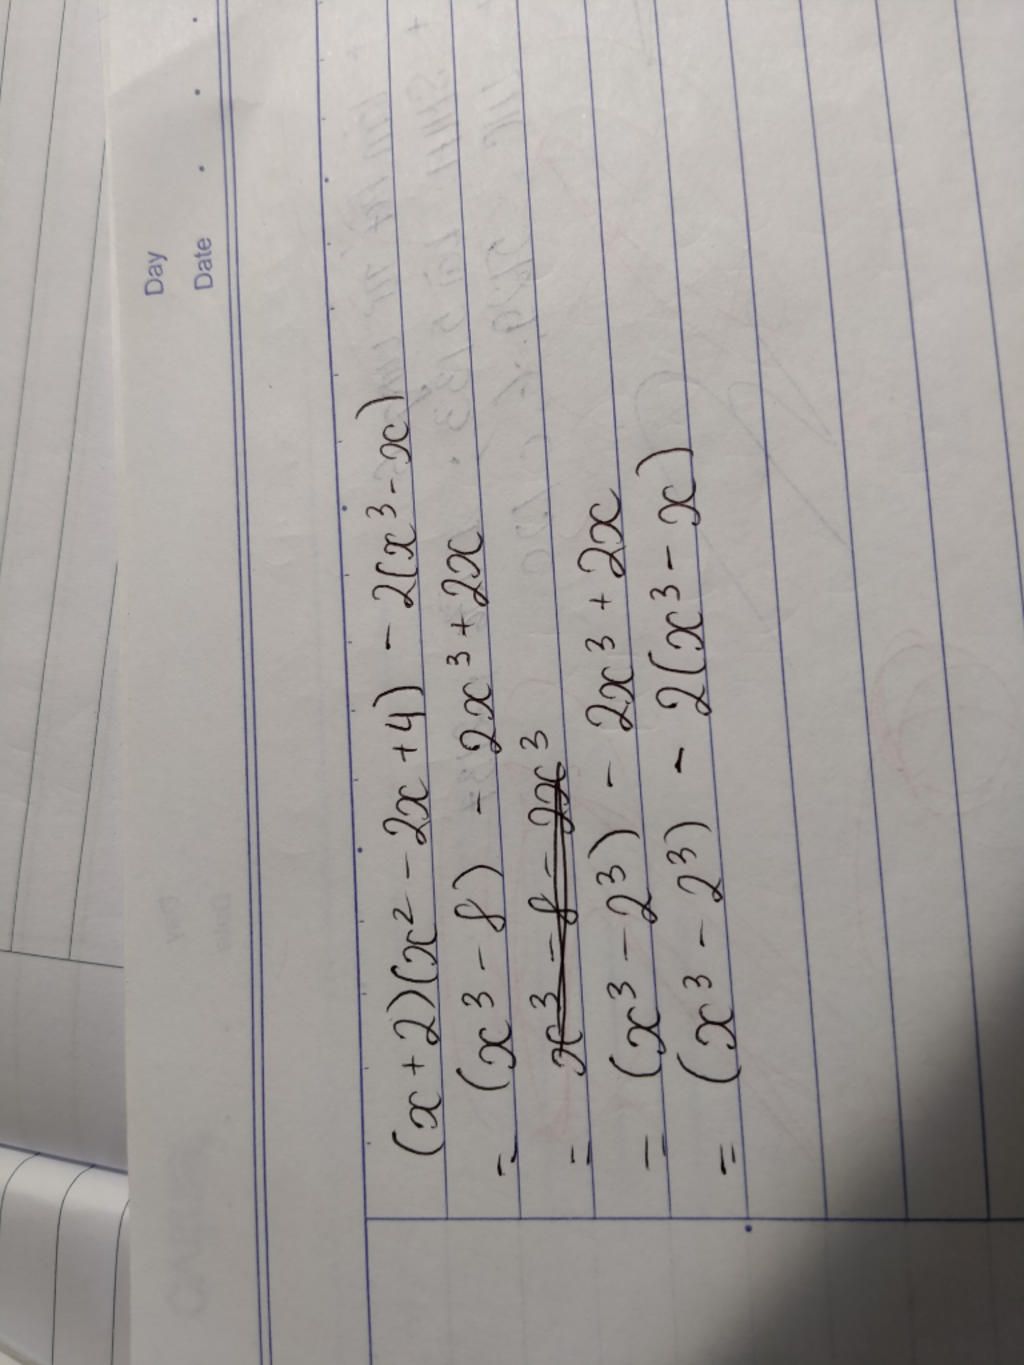 Day
Date
(x + 2)(x² - 2x + 4) - 2(x³ - x)
= (x³ - 8) - 2x³ + 2x
= x³ - 8 - 2x³
= (x³ - 2³) - 2x³ + 2x
= (x³ - 2³) - 2(x³ - x)